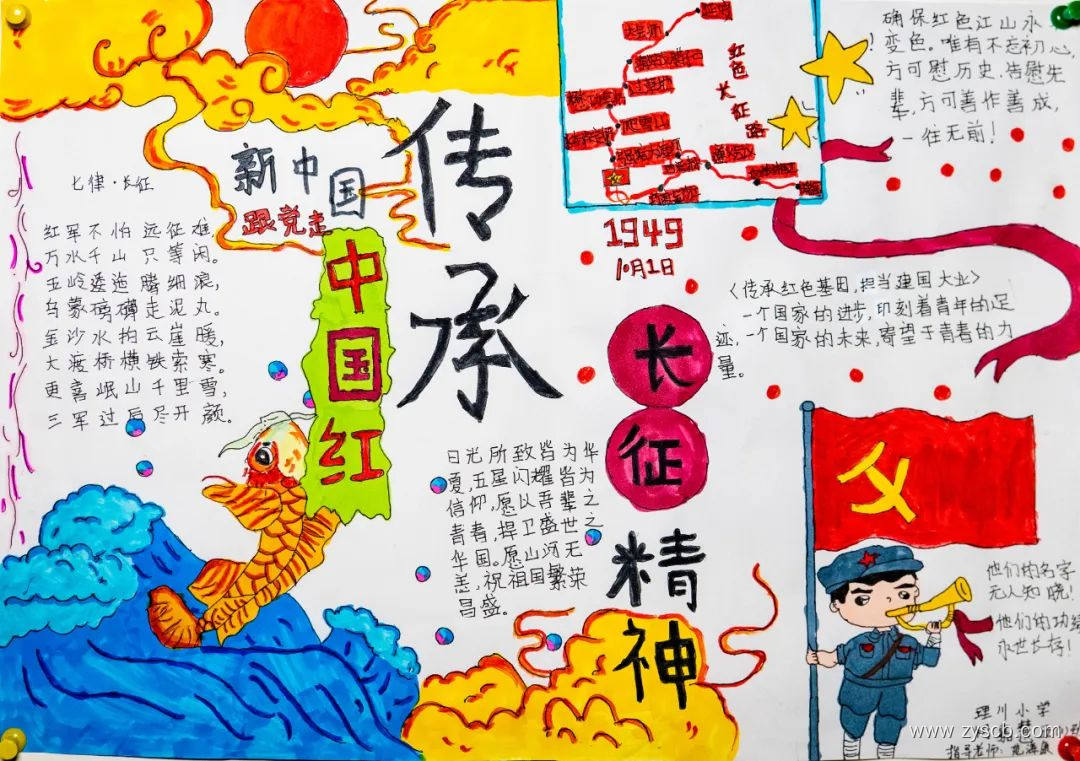 七律·长征
红军不怕远征难
万水千山只等闲。
五岭逶迤腾细浪，
乌蒙磅礴走泥丸。
金沙水拍云崖暖，
大渡桥横铁索寒。
更喜岷山千里雪，
三军过后尽开颜。
新中国
跟党走
中国红
传承
红色长征路
1949
10月1日
长征精神
日光所致皆为华
夏,五星闪耀皆为
信仰,愿以吾辈之
青春,捍卫盛世之
华国。愿山河无
恙,祝祖国繁荣
昌盛。
确保红色江山永
变色。唯有不忘初心,
方可慰历史、告慰先
辈,方可善作善成,
一往无前!
《传承红色基因,担当建国大业》
一个国家的进步,印刻着青年的足
迹,一个国家的未来,寄望于青春的力
量。
他们的名字
无人知晓!
他们的功绩
永世长存!
理川小学
指导老师:
www.zysob.com